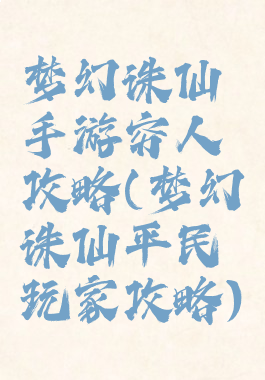 梦幻诛仙
手游穷人
攻略(梦幻
诛仙平民
玩家攻略)